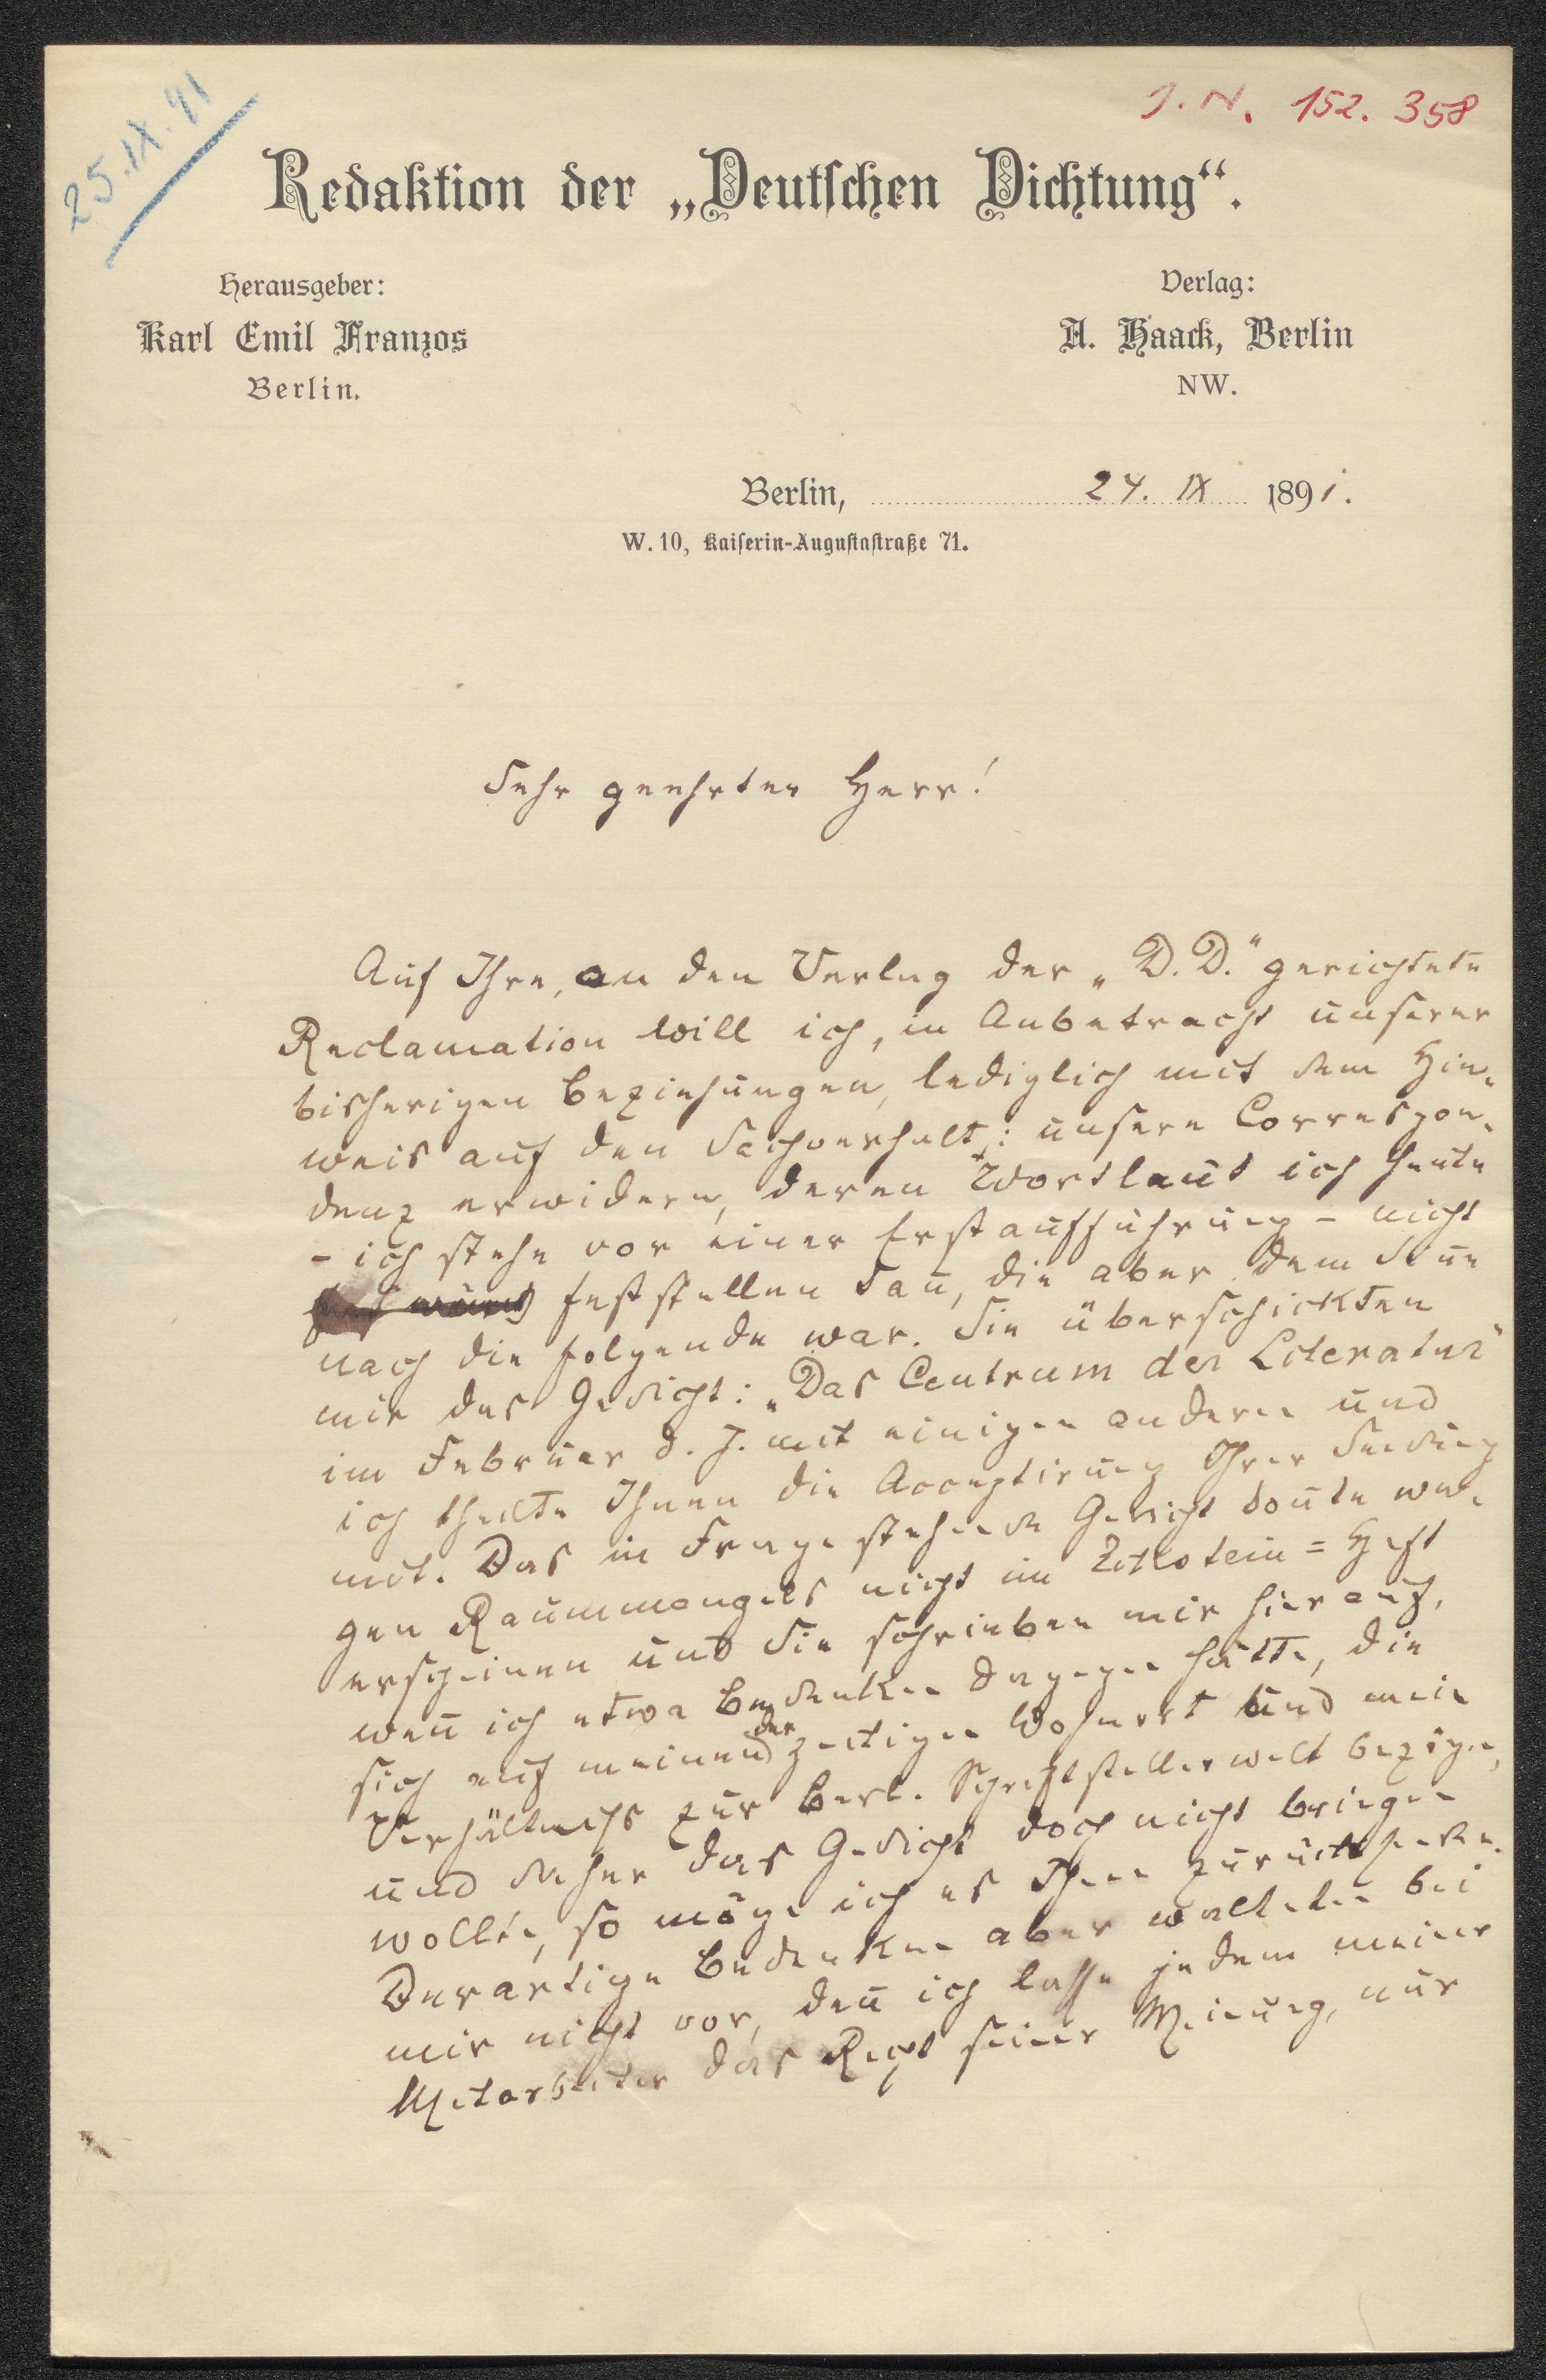 25.IX.91
I. N. 152.358
Redaktion der „Deutschen Dichtung“.
Herausgeber:
Karl Emil Franzos
Berlin.
Verlag:
A. Haack, Berlin
NW.
Berlin, 24. IX 1891.
W. 10, Kaiserin-Augustastraße 71.
Sehr geehrter Herr!
Auf Ihre, an den Verlag der „D. D.“ gerichtete
Reclamation will ich, in Anbetracht unserer
bisherigen Beziehungen, lediglich mit dem Hin-
weis auf den Sachverhalt: unsere Correspon-
denz erwidern, deren Wortlaut ich heute
- ich stehe vor einer Erstaufführung - nicht
feststellen kañ, die aber dem Siñe
nach die folgende war. Sie überschickten
mir das Gedicht: „Das Centrum der Literatur“
im Februar d. J. mit einigen anderen und
ich theilte Ihnen die Acceptirung Ihrer Sendung
mit. Das in Frage stehende Gedicht konnte we-
gen Raummangels nicht im Heft
erscheinen und Sie schrieben mir hierauf,
weñ ich etwa Bedenken dagegen hätte, die
sich auf meinen derzeitigen Wohnort und mein
Verhältniß zur Berl. Schriftstellerwelt bezögen,
und daher das Gedicht doch nicht bringen
wollte, so möge ich es Ihnen zurücksenden.
Derartige Bedenken aber walteten bei
mir nicht vor, deñ ich lasse jedem meiner
Mitarbeiter das Recht seiner Meinung, nur